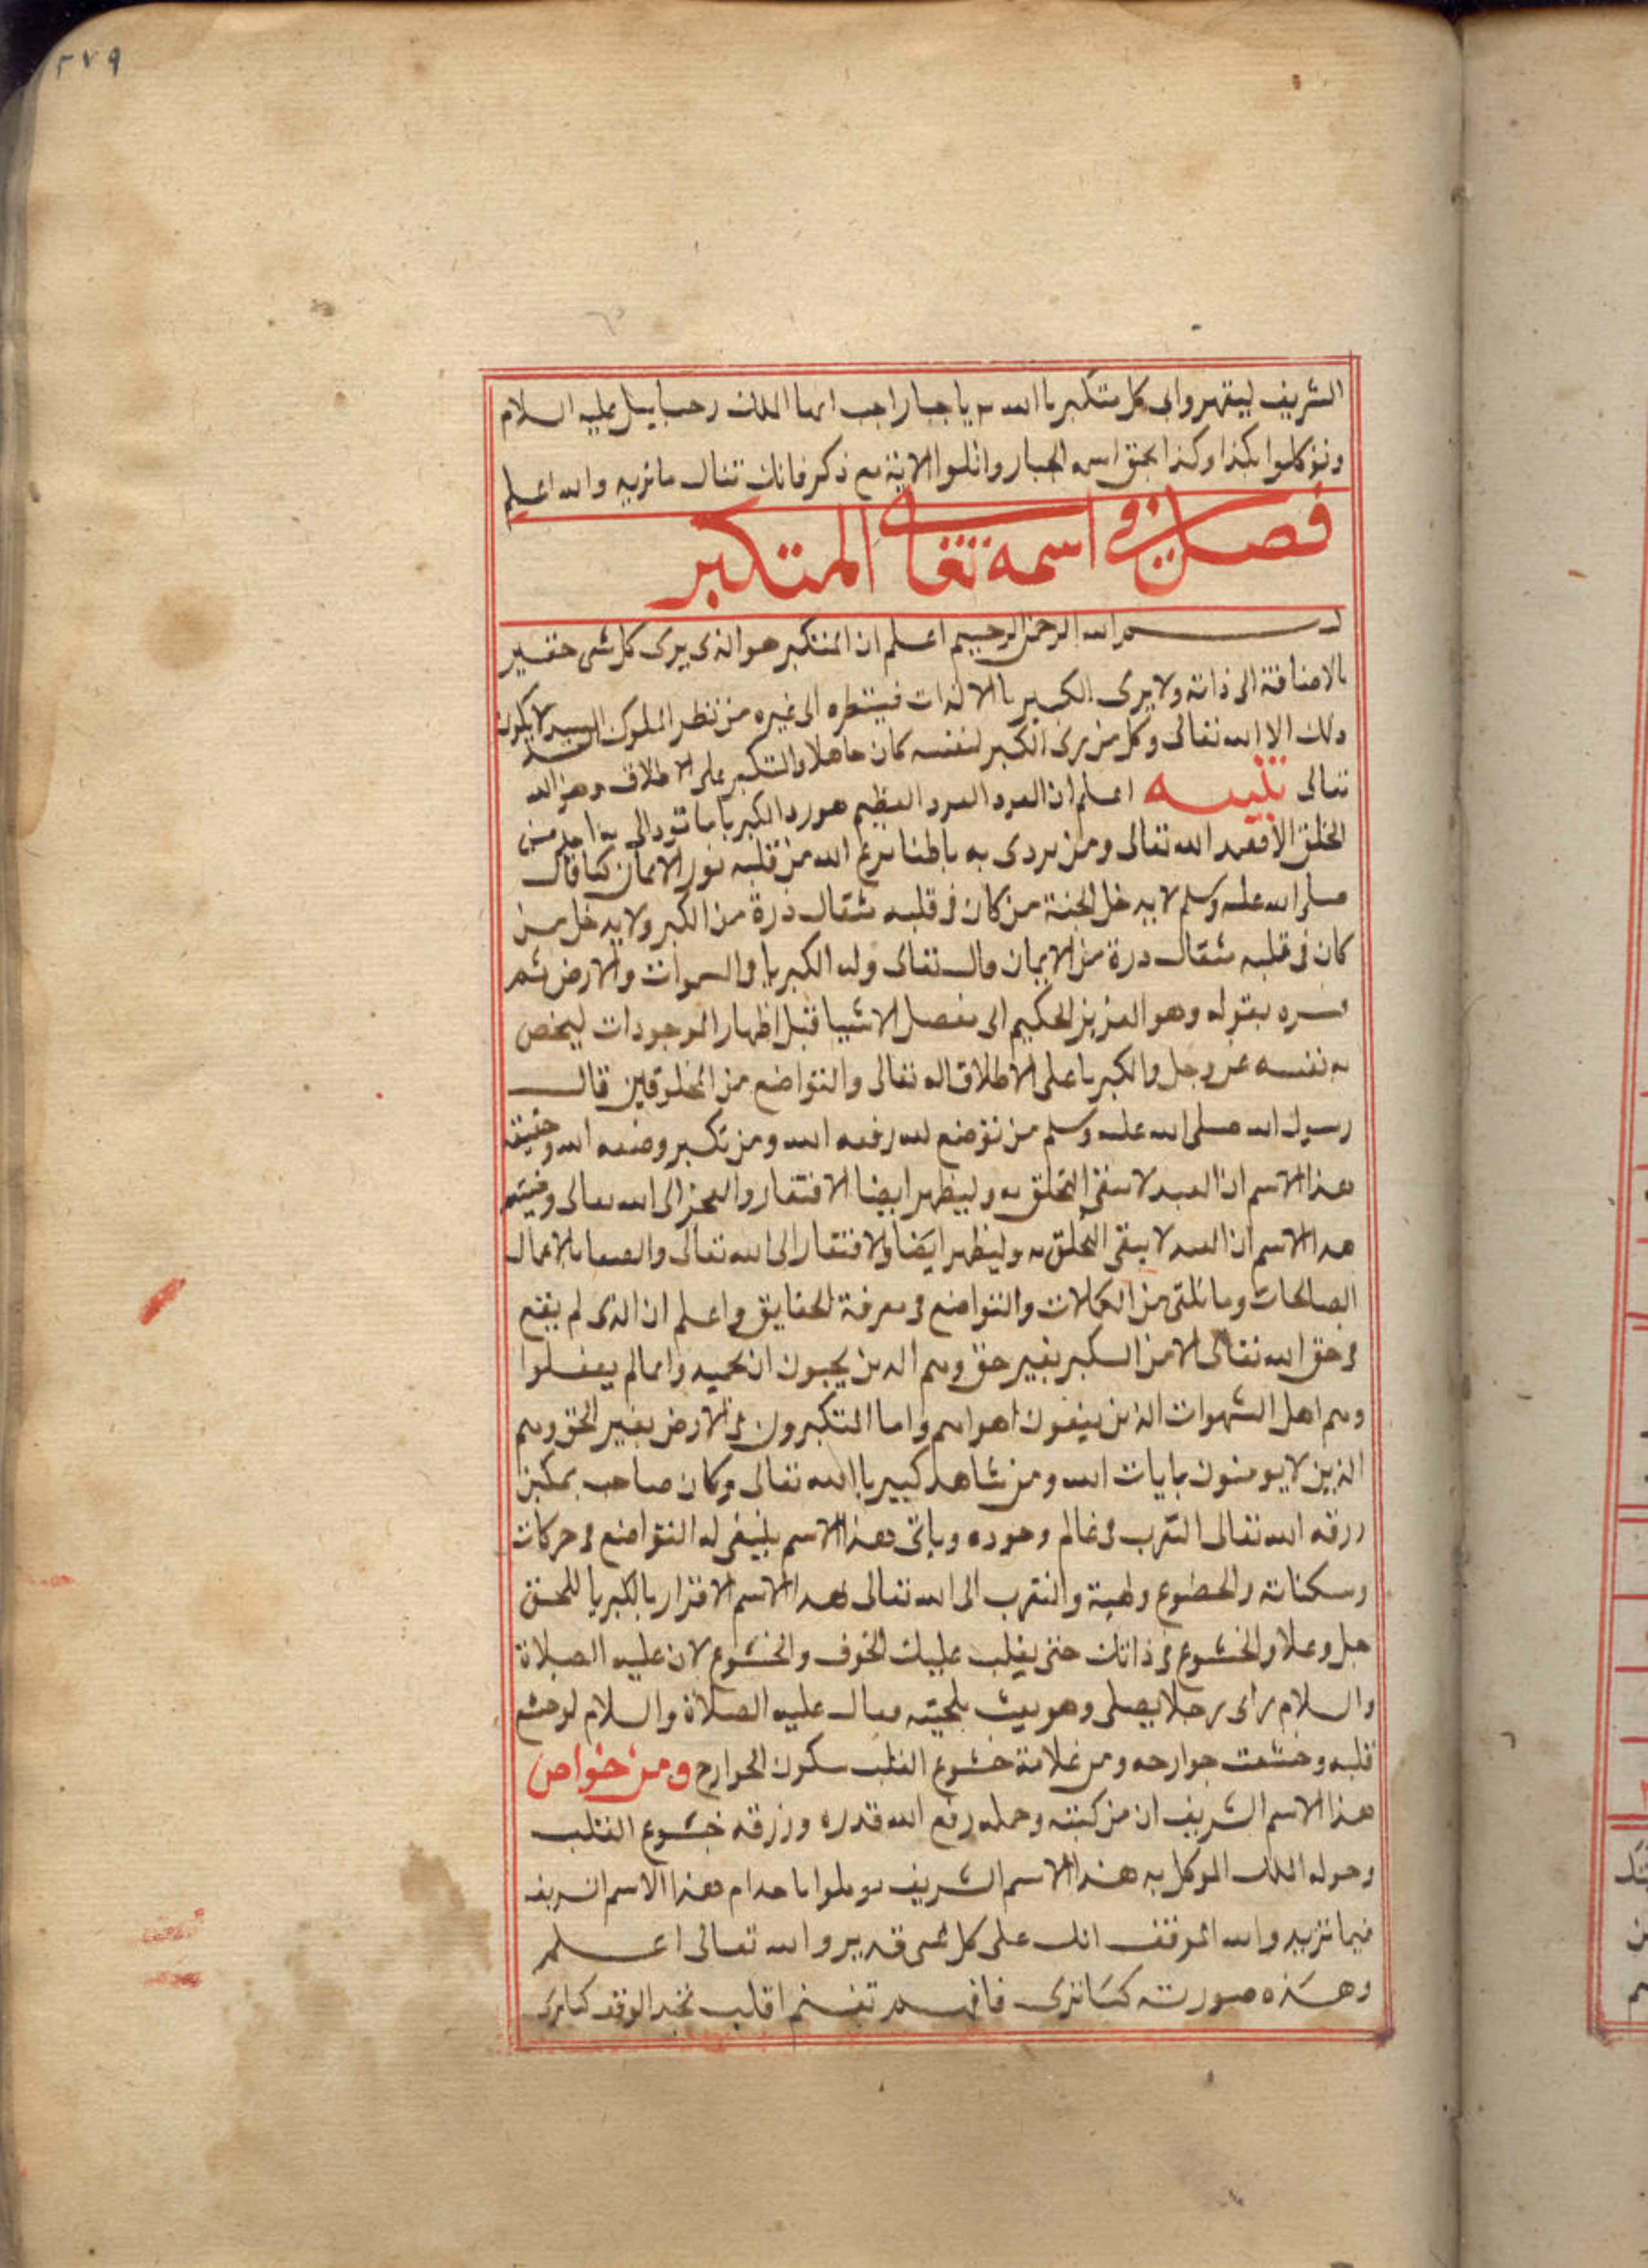 ٢٧٩
الشريف ليقهروا لى كل متكبر باالله يا جبار اجب ايها الملك رحيائيل عليه السلام
وتوكلوا بكذا وكذا بحق اسمه الجبار واتلوا الاية مع ذكر فانك تنال ما تريد والله اعلم
فصل في اسمه تعالى المتكبر
بسم الله الرحمن الرحيم اعلم ان المتكبر هو الذى يرى كل شى حقير
بالاضافة الى ذاته ولا يرى الكبير يا الا لذات فينظره الى غيره من نظر الملوك العبيد لا يكون
ذلك الا الله تعالى وكل من يرى الكبر لنفسه كان جاهلا والتكبر على الاطلاق وهو الله
تعالى تنبيه اعلم ان العظيم هو ردا الكبريا ما تردا به احد من
الخلق الا فقد الله تعالى ومن يردى به باطنا نزع الله من قلبه نور الايمان كما قال
صلى الله عليه وسلم لا يدخل الجنة من كان فى قلبه مثقال ذرة من الكبر ولا يدخل من
كان فى قلبه مثقال درة من الايمان قال تعالى وله الكبريا فى السموات والارض ثم
فسره بقوله وهو العزيز الحكيم اى مفصل الاشيا قبل اظهار الموجودات ليخص
به نفسه عز وجل والكبريا على الاطلاق له تعالى والتواضع من المخلوقين قال
رسول الله صلى الله عليه وسلم من توضع لله رفعه الله ومن تكبر وضعه الله وحقيقة
هذا الاسم ان العبد لا يبقى التخلق به وليظهر ايضا الافتقار والعجز الى الله تعالى
هدا الاسم ان العبد لا يبقى التخلق به وليظهر ايضا والافتقار الى الله تعالى بالاعمال
الصالحات وما تلقى من الكمالات والتواضع فى معرفة الحقايق واعلم ان الذى لم يقنع
فى حق الله تعالى الا من التكبر بغير حق وهم الدين يحبون ان يحمدوا بما لم يفعلوا
وهم اهل الشهوات الذين يتبعون اهواهم واما المتكبرون فى الارض بغير الحق وهم
الذين لا يومنون بايات الله ومن شاهد كبيريا الله تعالى وكان صاحب تمكين
رزقه الله تعالى التقرب فى عالم وجوده وياتى هذا الاسم ينبغى له التواضع فى حركات
وسكناته والخضوع وهيبة والتقرب الى الله تعالى لهدا الاسم الاقرار بالكبريا للحق
جل وعلا والخشوع فى ذاتك حتى يغلب عليك الخوف والخشوع لان عليه الصلاة
والسلام راى رجلا يصلى وهو يعبث بلحيته فقال عليه الصلاة والسلام لو خشع
قلبه وخشعت جوارحه ومن علامة خشوع القلب سكون الجوارح ومن خواص
هذا الاسم الشريف ان من كتبته وحمله رفع الله قدره ورزقه خشوع القلب
وحوله الملك الموكل به هذا الاسم الشريف توكلوا يا خدام هذا الاسم الشريف
فيما تريد والله الموفق انك على كل شى قدير والله تعالى اعلم
وهذه صورته كما ترى فافهم تغنم اقلب تجد الوفق كما ترى